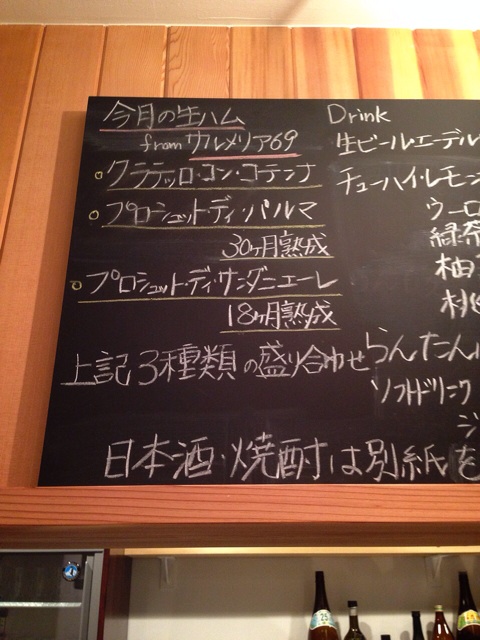 今月の生ハム
from サルメリア69
クラテッロ・コン・コテンナ
プロシュット・ディ・パルマ
30ヶ月熟成
プロシュット・ディ・サンダニエーレ
18ヶ月熟成
上記3種類の盛り合わせ
Drink
生ビールエーデル
チューハイ・レモン
ウーロ
緑茶
柚子
桃
らんたん
ソフトドリンク
ジ
日本酒・焼酎は別紙を
25